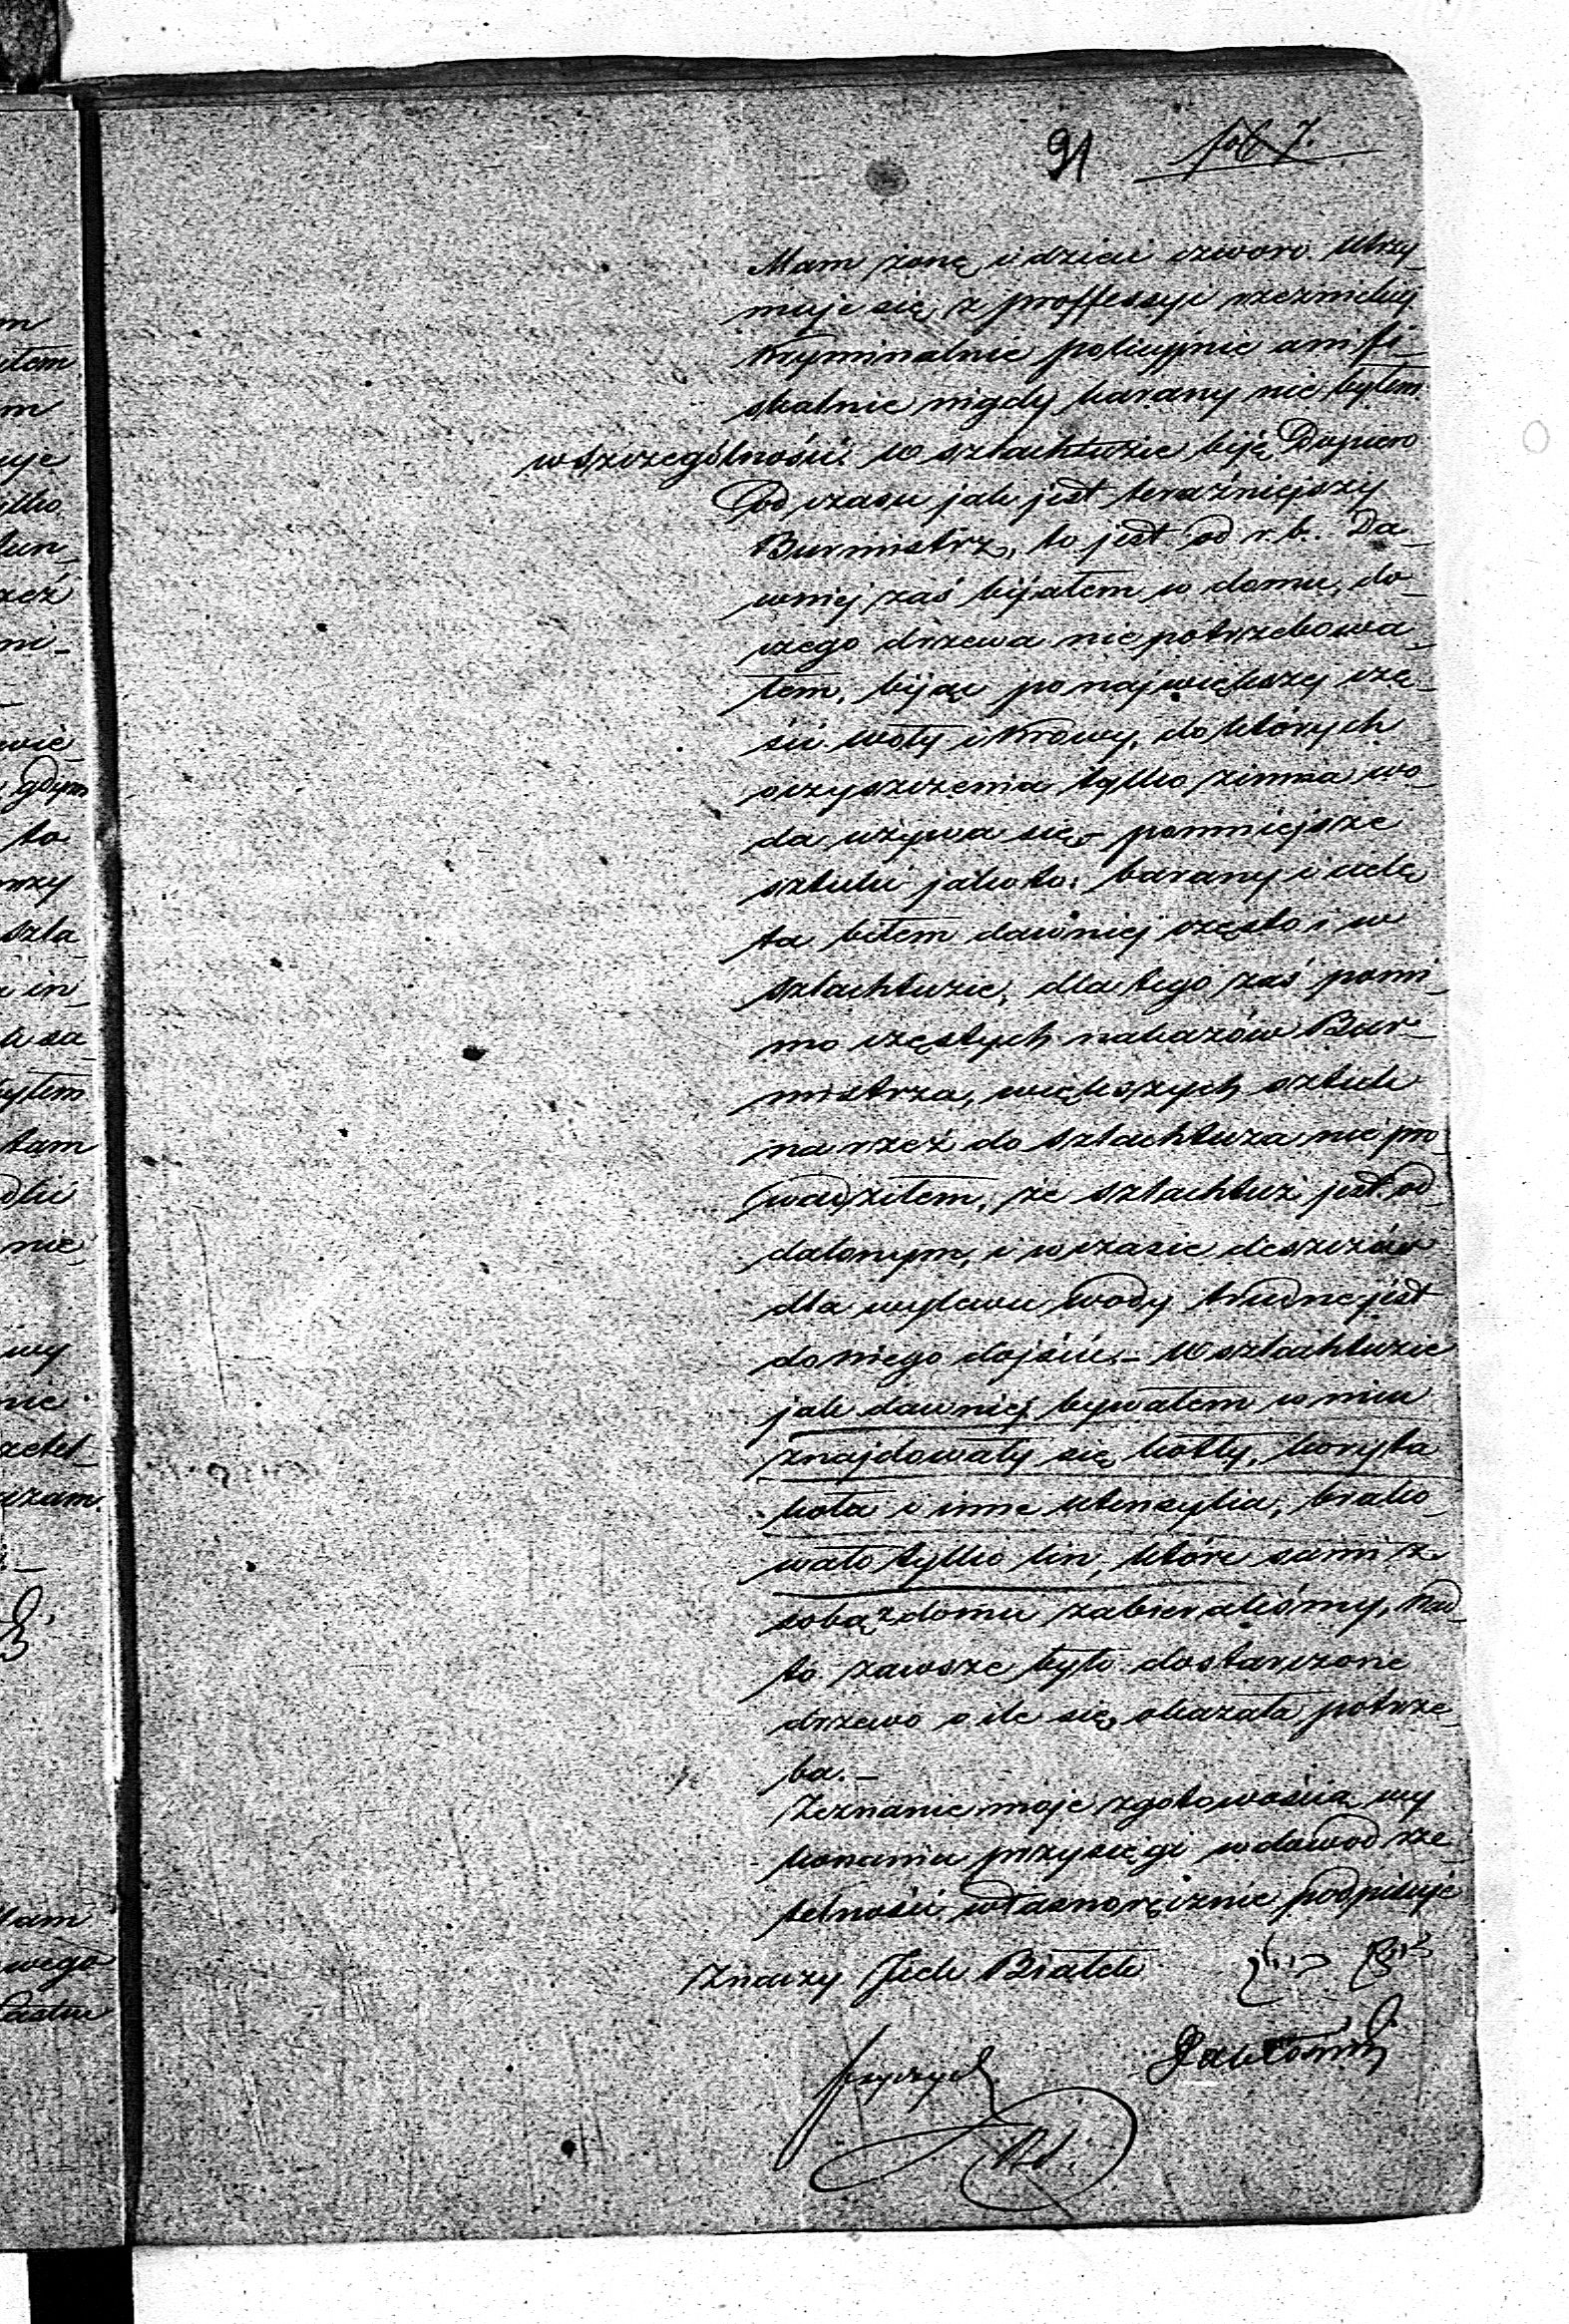 91 fol 7.
Mam żonę i dzieci czworo utrzy-
muje się z proffessyi rzeźnickiej
Kryminalnie policyjnie ani fi-
skalnie nigdy karany nie byłem
w szczególności: w szlachtuzie biję Dopiero
Od czasu jak jest teraźniejszy
Burmistrz, to jest od r. b. Da-
wniej zaś bijałem w domu, do
czego drzewa nie potrzebowa-
łem, bijąc po największej czę-
ści woły i krowy, do których
oczyszczenia tylko zimna wo-
da używa się, pomniejsze
sztuki jakoto: barany i cielę
ta biłem dawniej często i w
szlachtuzie, dla tego zaś pomi-
mo częstych nakazów Bur-
mistrza, większych sztuk
na rzeź do szlachtuza nie pro
wadziłem, że szlachtuz jest od
dalonym, i w czasie deszczów
dla wylewu wody trudne jest
do niego dojście. – W szlachtuzie
jak dawniej bywałem w nim
znajdowały się kotły, koryta
koła i inne utensylia, brako-
wało tylko lin, które sami z
sobą z domu zabieraliśmy, Nad
to zawsze było dostarczone
drzewo o ile się okazała potrze-
ba. –
Zeznanie moje z gotowością wy
konania przysięgi w dowód rze
telności własnoręcznie podpisuję
Znaczy Icek Białek